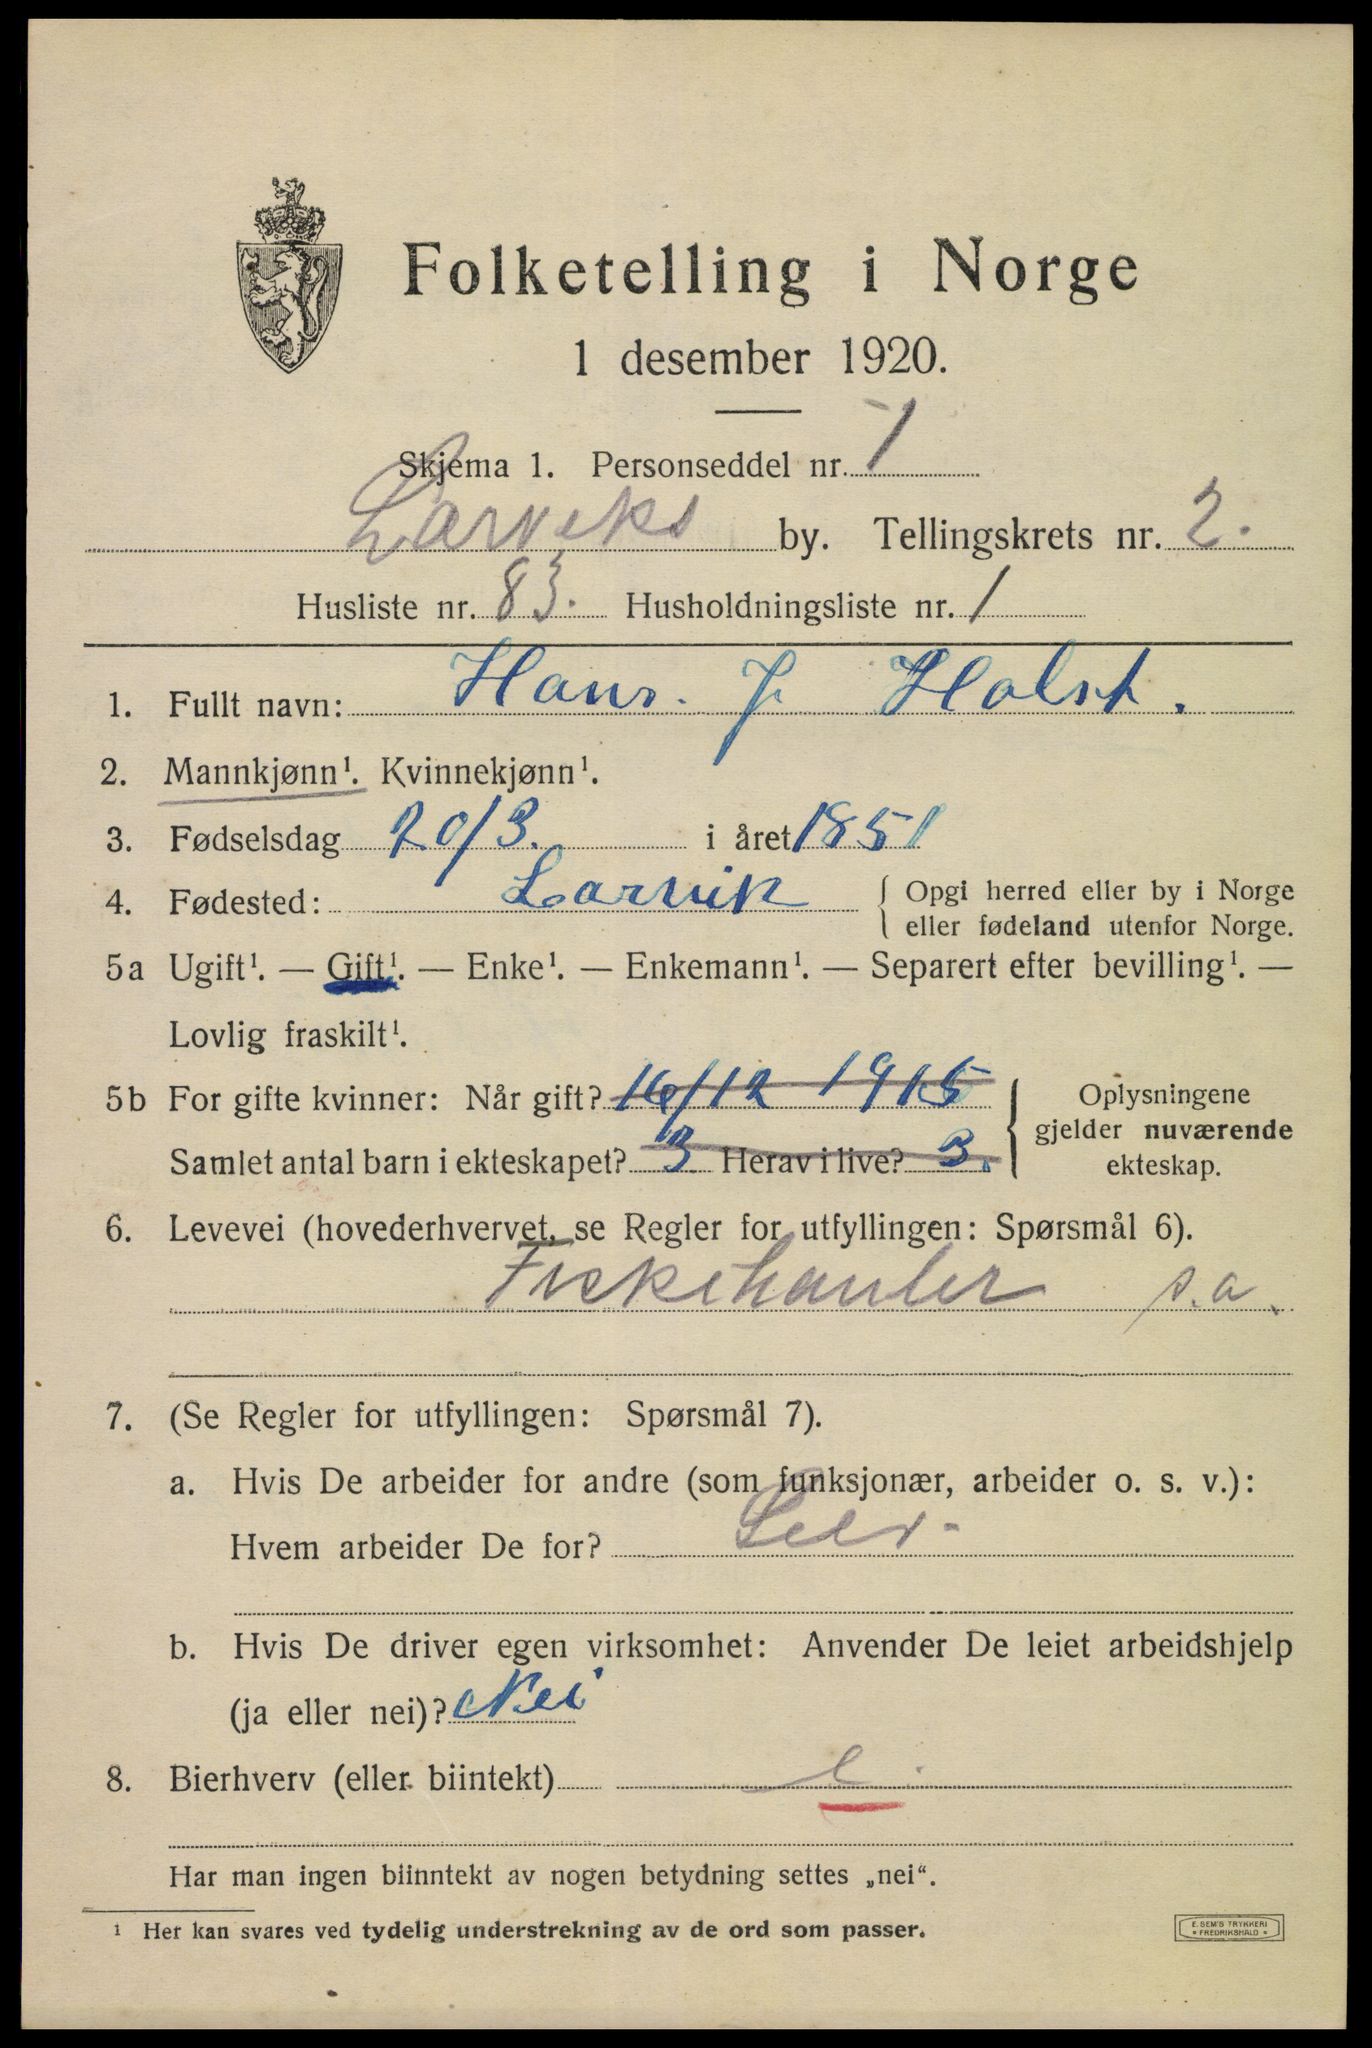 Folketelling i Norge
1 desember 1920.
Skjema 1. Personseddel nr. 1
Larviks by. Tellingskrets nr. 2.
Husliste nr. 83. Husholdningsliste nr. 1
1. Fullt navn: Hans. J. Holst.
2. Mannkjønn¹. Kvinnekjønn¹.
3. Fødselsdag 20/3. i året 1851
4. Fødested: Larvik { Opgi herred eller by i Norge
eller fødeland utenfor Norge.
5a Ugift¹. — Gift¹. — Enke¹. — Enkemann¹. — Separert efter bevilling¹. —
Lovlig fraskilt¹.
5b For gifte kvinner: Når gift? 16/12 1915 } Oplysningene
gjelder nuværende
ekteskap.
Samlet antal barn i ekteskapet? 3 Herav i live? 3.
6. Levevei (hovederhvervet, se Regler for utfyllingen: Spørsmål 6).
Fiskehanler s.a.
7. (Se Regler for utfyllingen: Spørsmål 7).
a. Hvis De arbeider for andre (som funksjonær, arbeider o. s. v.):
Hvem arbeider De for? Selv
b. Hvis De driver egen virksomhet: Anvender De leiet arbeidshjelp
(ja eller nei)? Nei
8. Bierhverv (eller biintekt)
Har man ingen biinntekt av nogen betydning settes „nei“.
¹ Her kan svares ved tydelig understrekning av de ord som passer.
E. SEM'S TRYKKERI
* FREDRIKSHALD *